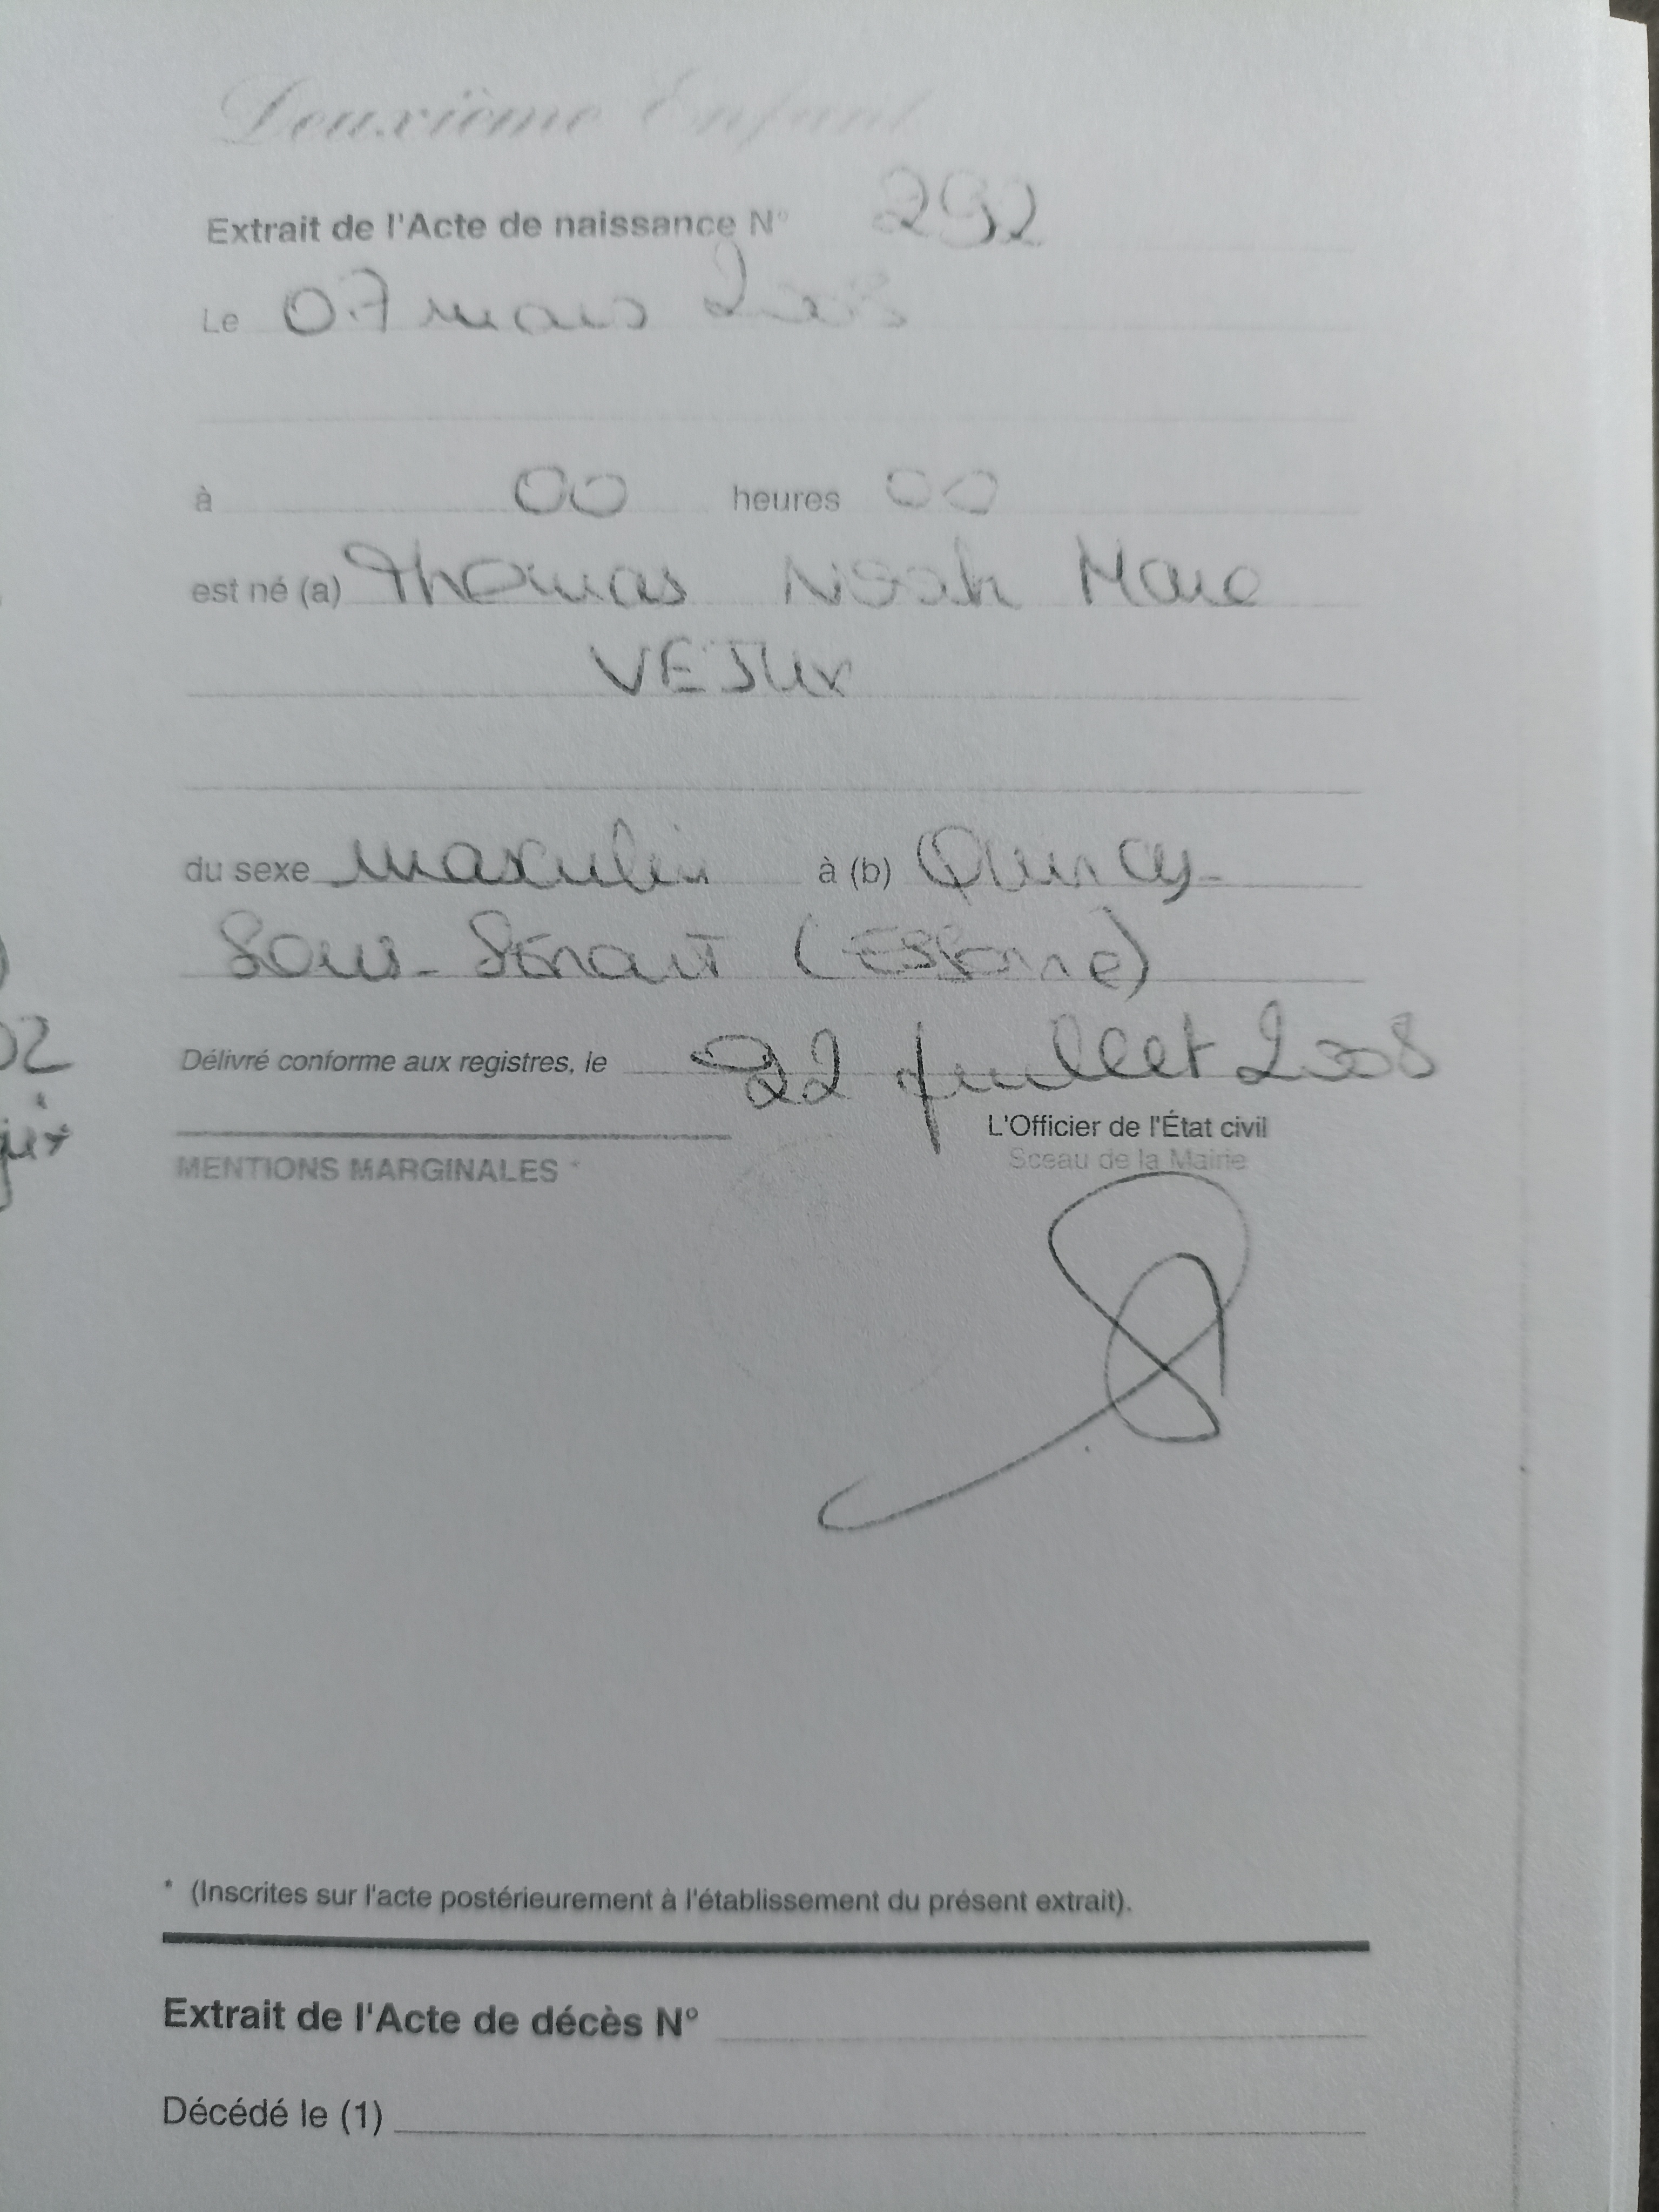 Deuxième Enfant
Extrait de l'Acte de naissance N° 292
Le 07 mars 2008
à 00 heures 00
est né (a) Thomas Noah Marc
VEJUX
du sexe masculin à (b) Quincy-
Sous-Sénart (Essonne)
02
Délivré conforme aux registres, le 22 juillet 2008
L'Officier de l'État civil
Sceau de la Mairie
MENTIONS MARGINALES *
* (Inscrites sur l'acte postérieurement à l'établissement du présent extrait).
Extrait de l'Acte de décès N°
Décédé le (1)